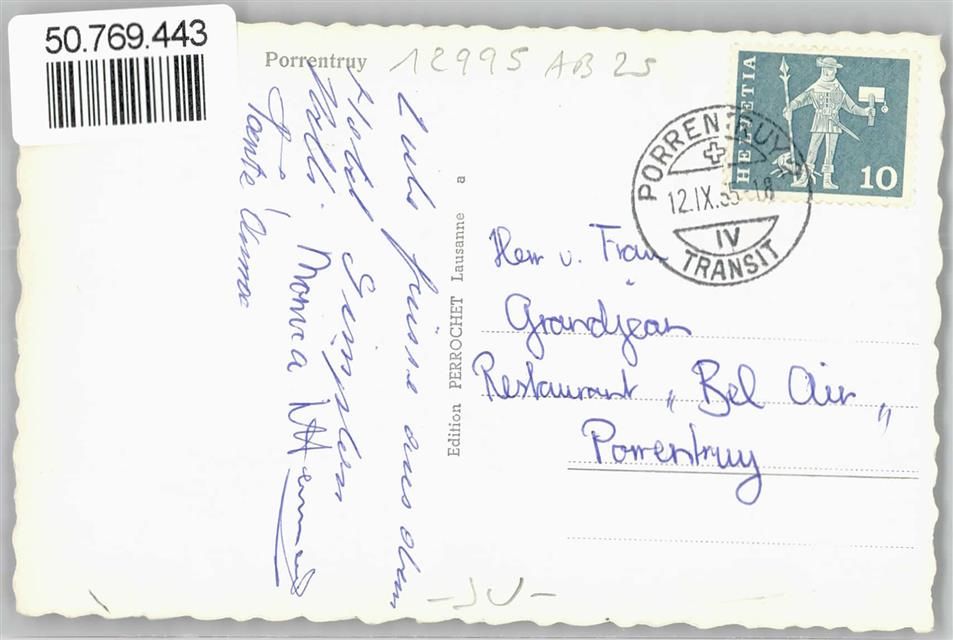 50.769.443
Porrentruy
12995 AB 25
Liebe Grüsse aus dem
Hotel
Tante Anna
Monica
Edition PERROCHET Lausanne
a
HELVETIA
10
PORRENTRUY
12.IX.65-18
IV
TRANSIT
Herr u. Frau
Grandjean
Restaurant „ Bel Air „
Porrentruy
-JU-